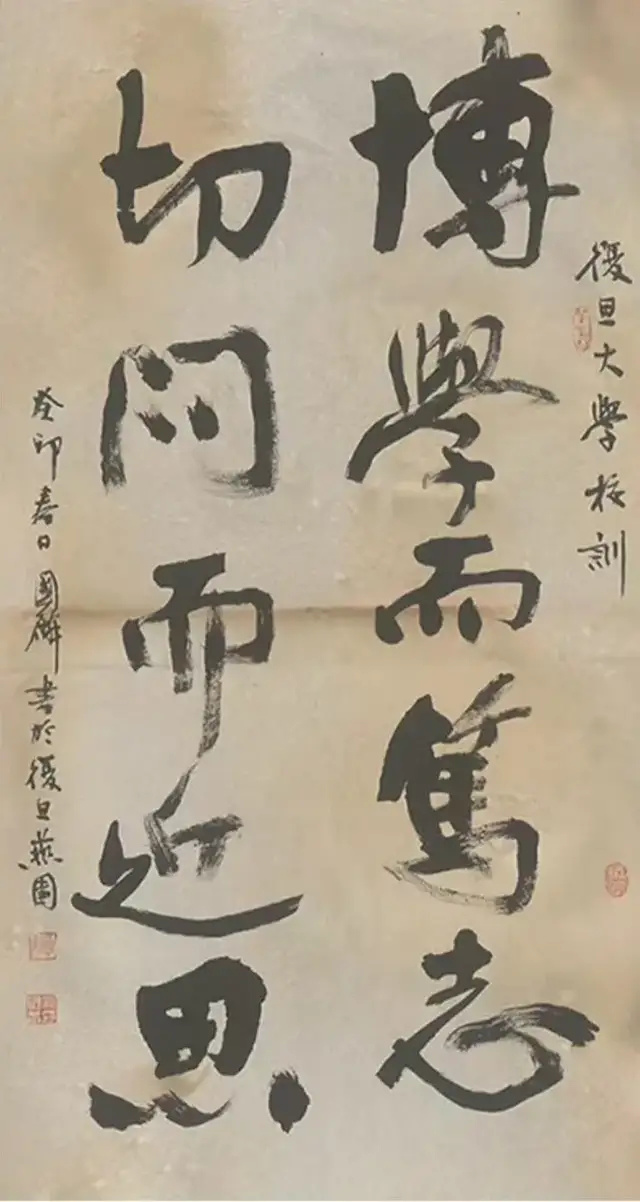 復旦大學校訓
博學而篤志
切問而近思
癸卯春日國麟書於復旦燕園